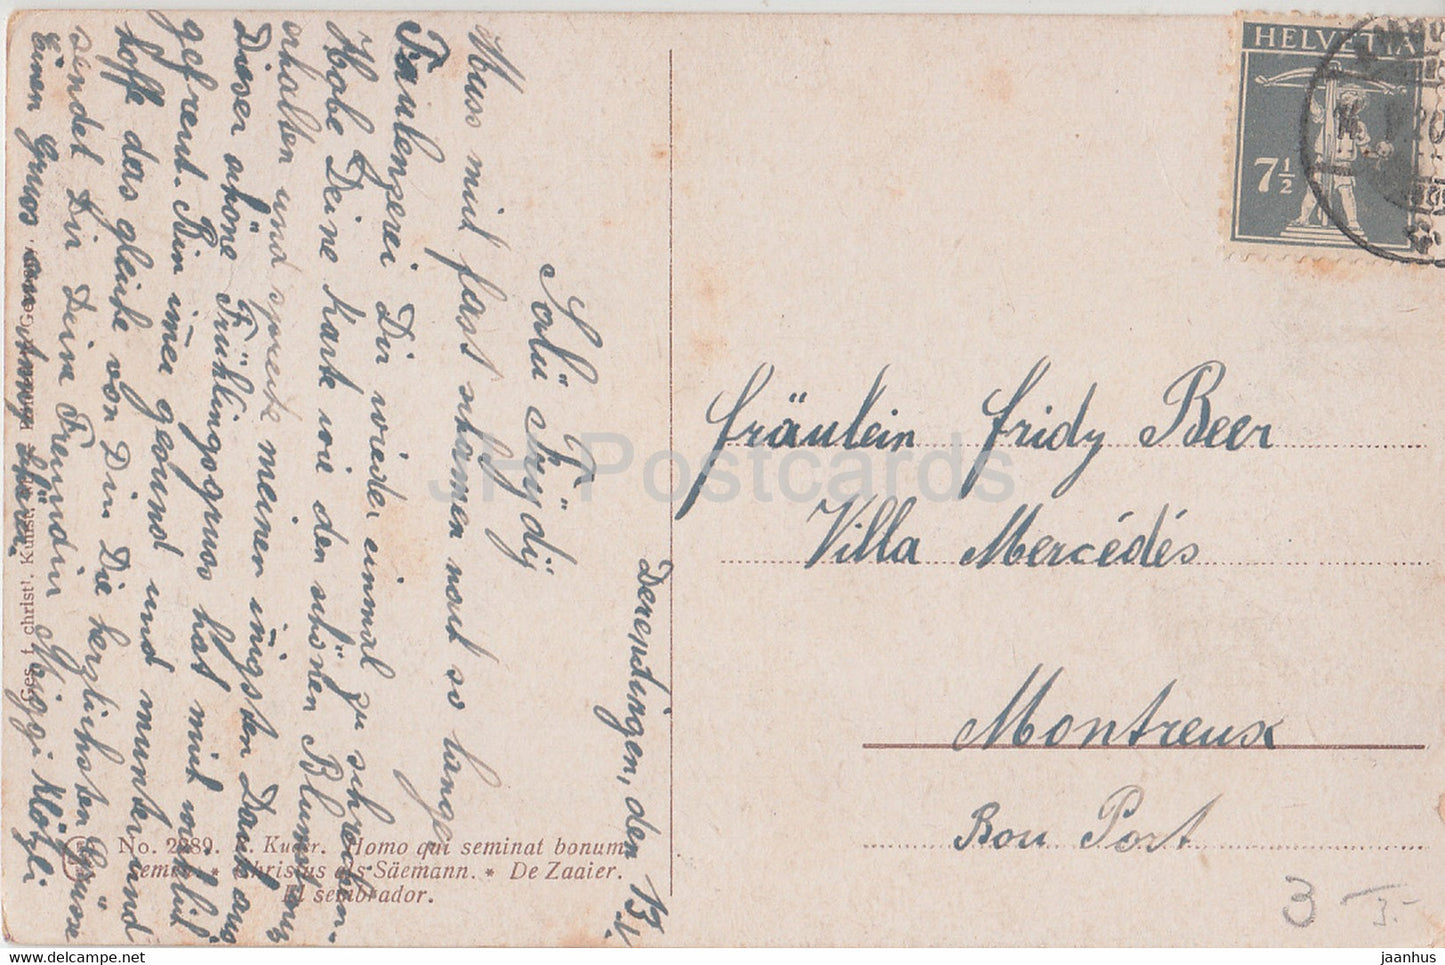 Derendingen, den 13.
Salü Frydÿ
Muss mich fast schämen nach so langer
Faulenzerei Dir wieder einmal zu schreiben.
Habe Deine Karte wie den schönen Blumen
erhalten und spreche meinen innigsten Dank aus
Dieser schöne Frühlingsgruss hat mich wirklich
gefreut. Bin immer gesund und munter und
hoffe das gleiche von Dir. Die herzlichsten Grüsse
sendet Dir Deine Freundin Miggi Klötzli
Einen Gruss von
HELVETIA
7½
14. V. 20
Fräulein Fridy Beer
Villa Mercédés
Montreux
Bon Port
No. 2989. Homo qui seminat bonum
semen. * Christus als Säemann. * De Zaaier.
El sembrador.
Ges. f. christl. Kunst,
JH Postcards
3 3.-
jh-postcards.com
jaanhus